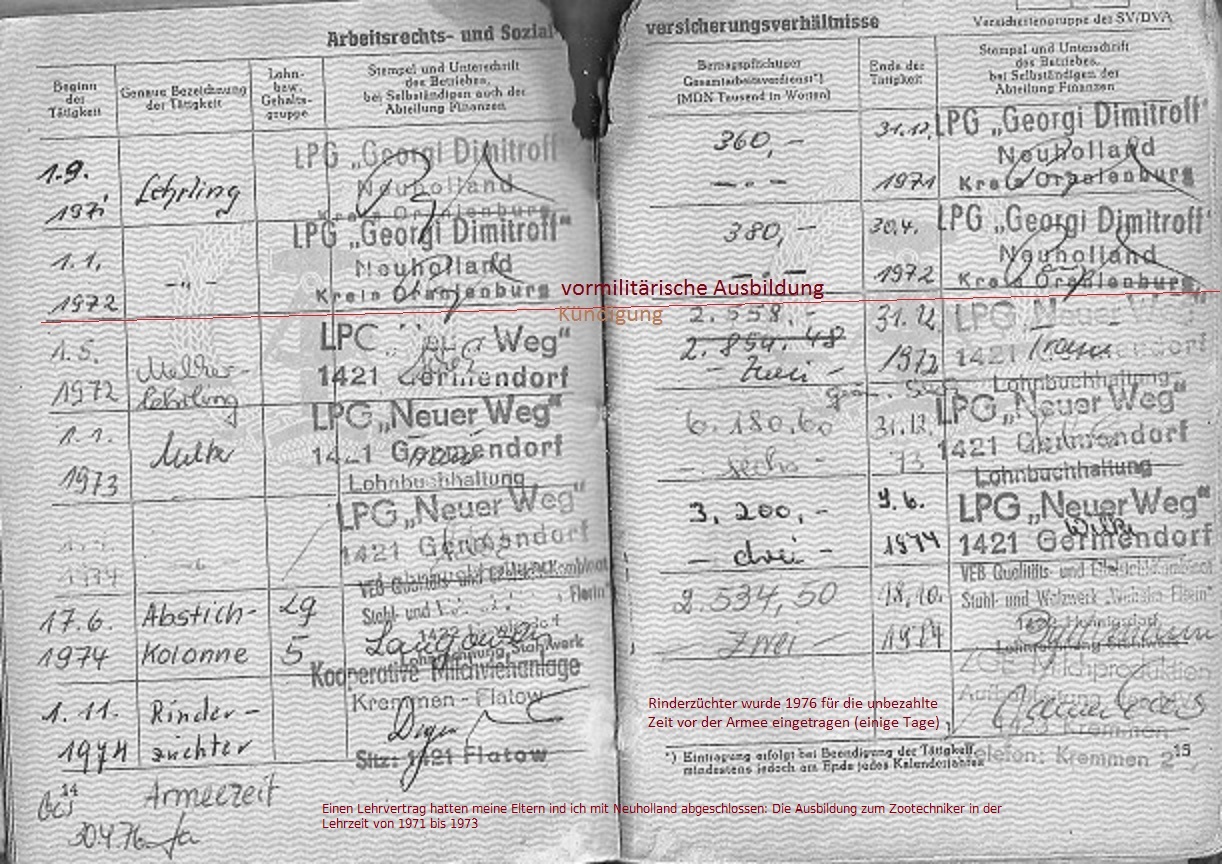 Arbeitsrechts- und Sozial-
versicherungsverhältnisse
Versichertengruppe der SV/DVA
Beginn
der
Tätigkeit
Genaue Bezeichnung
der Tätigkeit
Lohn-
bzw.
Gehalts-
gruppe
Stempel und Unterschrift
des Betriebes,
bei Selbständigen auch der
Abteilung Finanzen
Beitragspflichtiger
Gesamtarbeitsverdienst*)
(MDN Tausend in Worten)
Ende der
Tätigkeit
Stempel und Unterschrift
des Betriebes,
bei Selbständigen der
Abteilung Finanzen
1.9.
1971
Lehrling
LPG „Georgi Dimitroff"
Neuholland
Kreis Oranienburg
360,-
-.-
31.12.
1971
LPG „Georgi Dimitroff"
Neuholland
Kreis Oranienburg
1.1.
1972
-"-
LPG „Georgi Dimitroff"
Neuholland
Kreis Oranienburg
380,-
-.-
30.4.
1972
LPG „Georgi Dimitroff"
Neuholland
Kreis Oranienburg
vormilitärische Ausbildung
Kündigung
1.5.
1972
Melker-
Lehrling
LPG Weg"
1421 Germendorf
2.558,-
2.854,48
- Zwei -
31.12.
1972
LPG Neuer Weg"
1421
Lohnbuchhaltung
1.1.
1973
Melker
LPG „Neuer Weg"
1421 Germendorf
Lohnbuchhaltung
6.180,60
- sechs -
31.12.
73
LPG „Neuer Weg"
1421 Germendorf
Lohnbuchhaltung
1974
LPG „Neuer Weg"
1421 Germendorf
3.200,-
- drei -
9.6.
1974
LPG „Neuer Weg"
1421 Germendorf
17.6.
1974
Abstich-
Kolonne
Lg
5
VEB Qualitäts- und Edelstahl-Kombinat
Stahl- und
2.534,50
- Zwei -
18.10.
1974
VEB Qualitäts- und Edelstahl-Kombinat
Stahl- und Walzwerk „Wilhelm Florin"
1.11.
1974
Rinder-
züchter
Kooperative Milchviehanlage
Kremmen - Flatow
Sitz: 1421 Flatow
Rinderzüchter wurde 1976 für die unbezahlte
Zeit vor der Armee eingetragen (einige Tage)
ZGE Milchproduktion
Kremmen
Telefon: Kremmen 2
*) Eintragung erfolgt bei Beendigung der Tätigkeit,
mindestens jedoch am Ende jedes Kalenderjahres
15
14
bis
30.4.76
Armeezeit
Einen Lehrvertrag hatten meine Eltern ind ich mit Neuholland abgeschlossen: Die Ausbildung zum Zootechniker in der
Lehrzeit von 1971 bis 1973